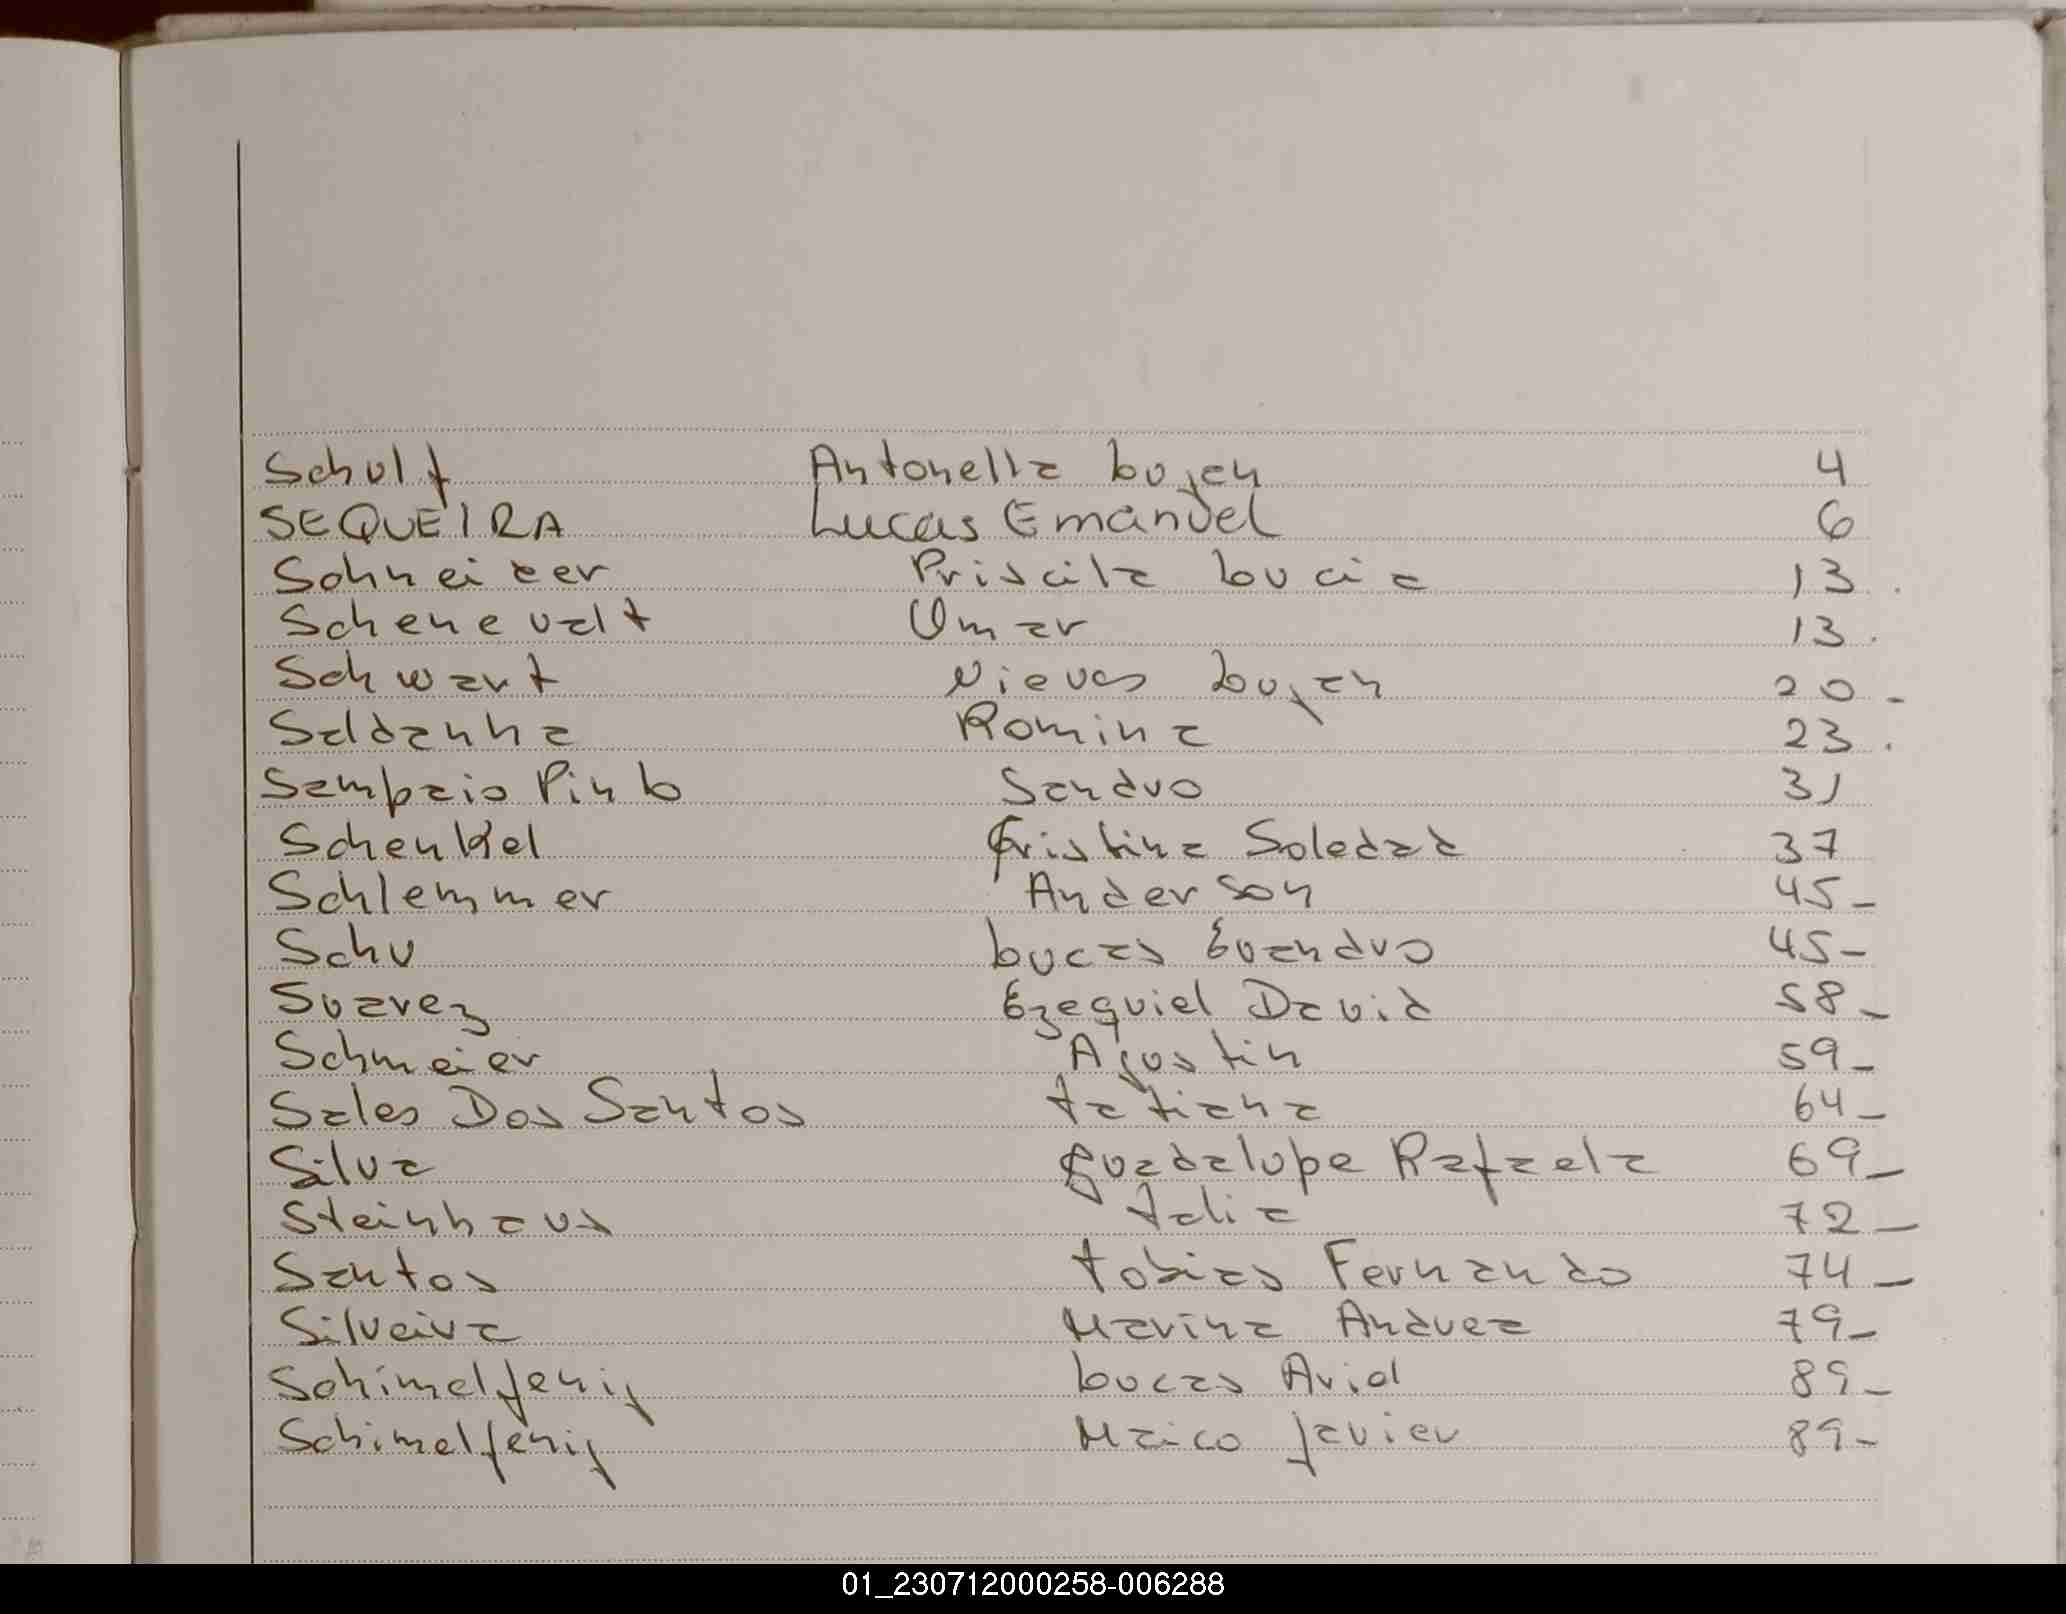 Schult Antonella Lujen 4
SEQUEIRA Lucas Emanuel 6
Schneizer Priscila Lucia 13
Schenevalt Omar 13
Schwart Nieves Lujan 20
Saldanha Romina 23
Sampaio Pinto Sandro 31
Schenkel Cristina Soledad 37
Schlemmer Anderson 45
Schu Lucas Evandro 45
Suarez Ezequiel David 58
Schmeier Agostin 59
Sales Dos Santos Tatiana 64
Silva Guadalupe Rafaela 69
Steinhaus Talia 72
Santos Tobias Fernando 74
Silveira Marina Andrea 79
Schimelfenig Lucas Ariel 89
Schimelfenig Maico Javier 89
01_230712000258-006288